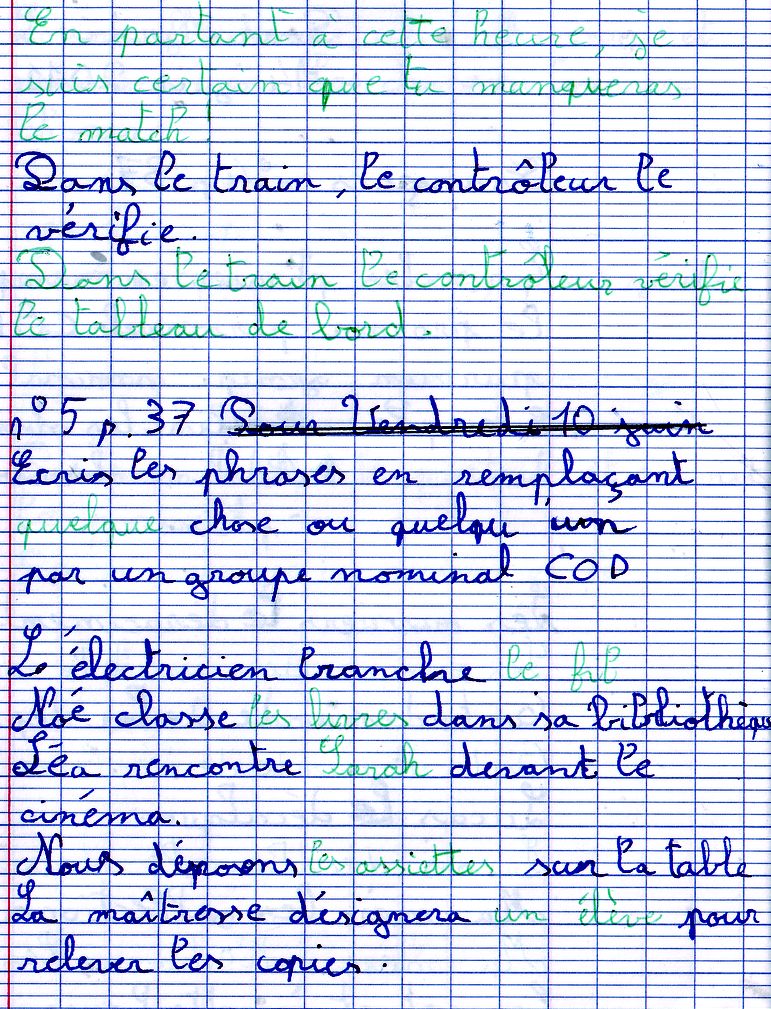 En partant à cette heure, je
suis certain que tu manqueras
le match !
Dans le train, le contrôleur le
vérifie.
Dans le train le contrôleur vérifie
le tableau de bord.
n° 5 p. 37 Pour Vendredi 10 juin
Ecris les phrases en remplaçant
quelque chose ou quelqu'un
par un groupe nominal COD
L'électricien branche le fil
Noé classe les livres dans sa bibliothèque
Léa rencontre Sarah devant le
cinéma.
Nous déposons les assiettes sur la table
La maîtresse désignera un élève pour
relever les copies.